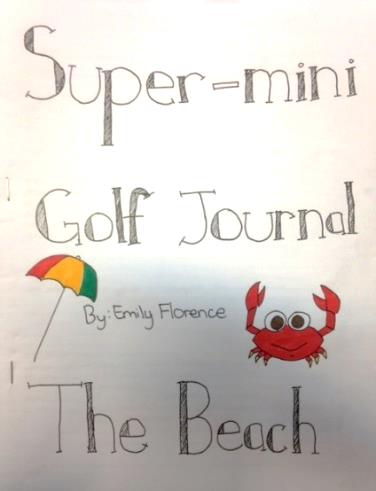 Super-mini
Golf Journal
By: Emily Florence
The Beach